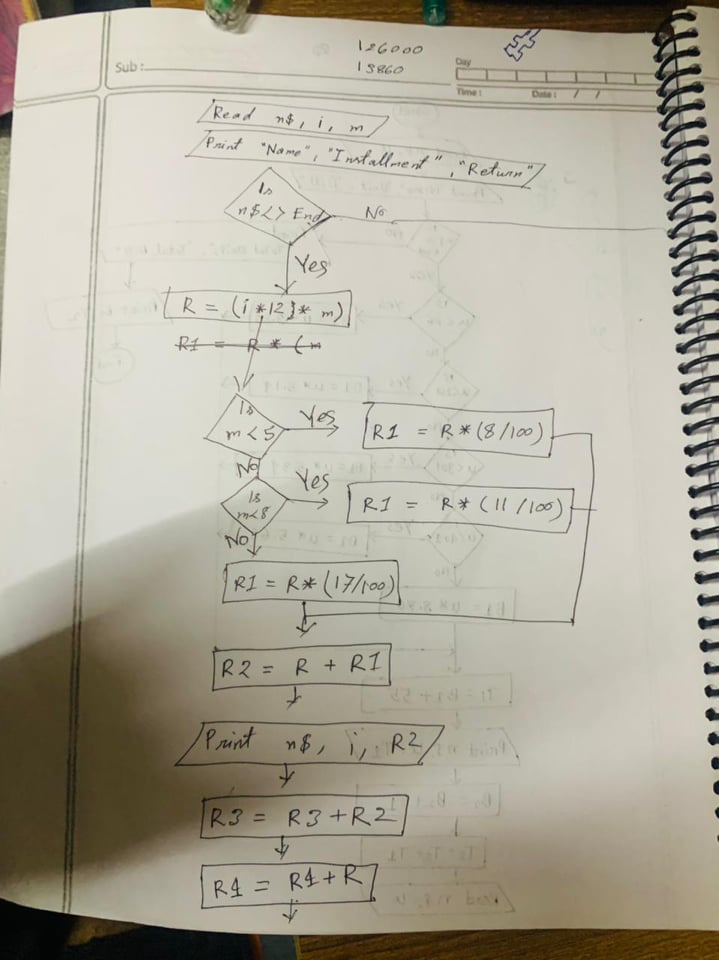 126000
13860
Sub :
Day
Time :
Date : / /
Read n$, i, m
Print "Name", "Installment", "Return"
Is
n$<> End
No
Yes
R = (i *12}* m)
R1 = R * (m
Is
m<5
Yes
R1 = R*(8/100)
No
Is
m<8
Yes
R1 = R*(11/100)
No
R1 = R*(17/100)
R2 = R + R1
Print n$, i, R2
R3 = R3+R2
R4 = R4+R